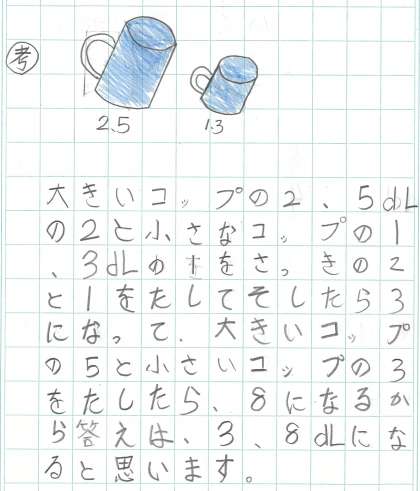 考
2.5
1.3
大きいコップの2、5dL
の2と小さなコップの1
、3dLの1をさっきの2
と1をたしてそしたら3
になって、大きいコップ
の5と小さいコップの3
をたしたら、8になるか
ら答えは、3、8dLにな
ると思います。